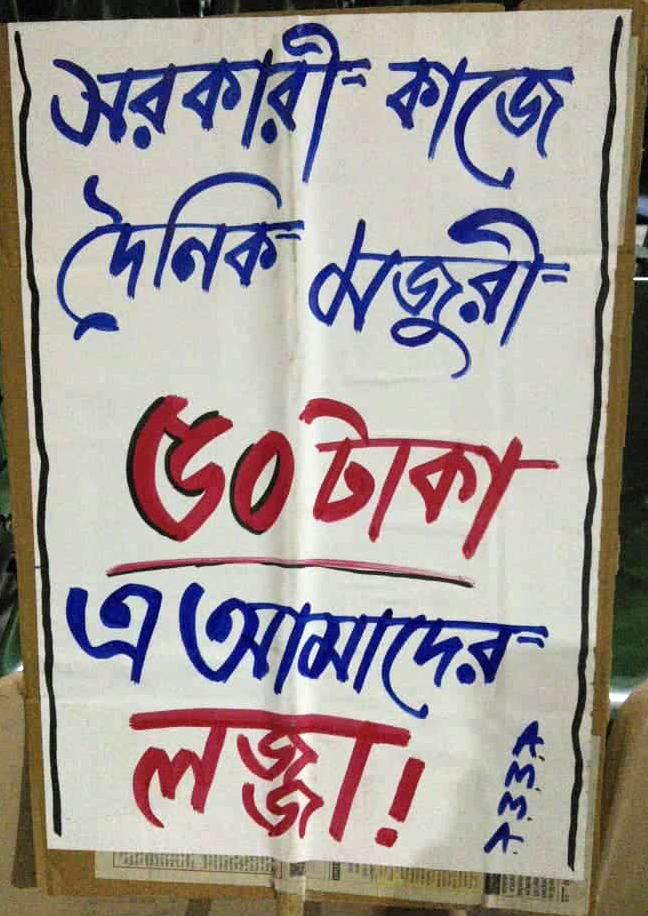 সরকারী কাজে
দৈনিক মজুরী
৫০ টাকা
এ আমাদের
লজ্জা!